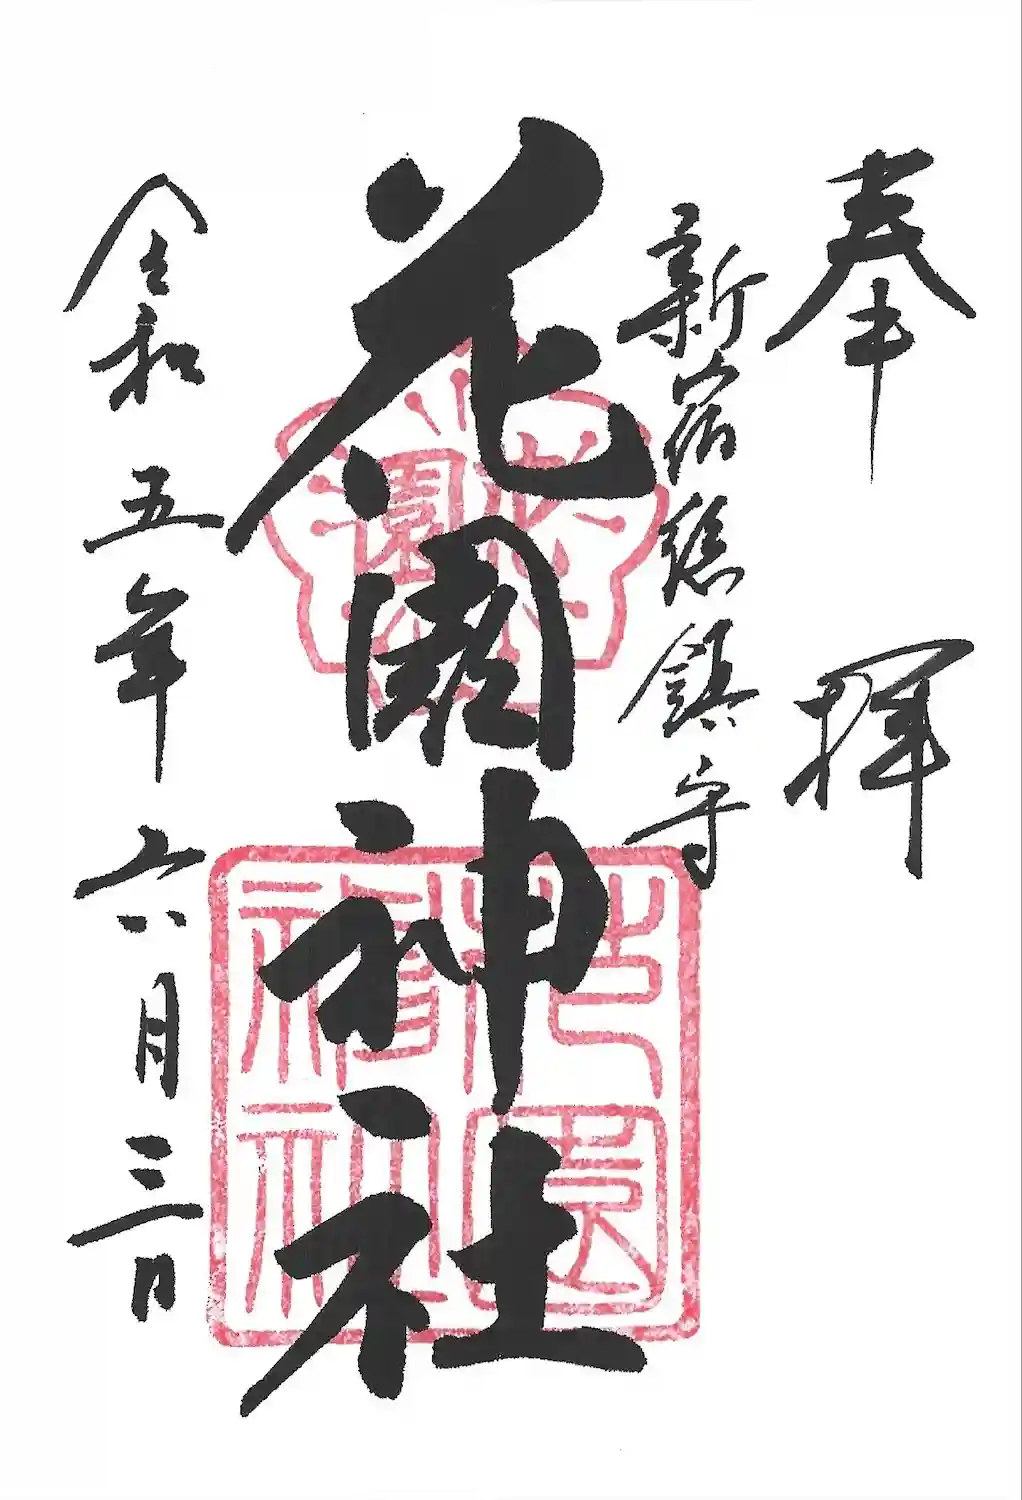 奉拝
新宿総鎮守
花園神社
令和五年六月三日
花園神社